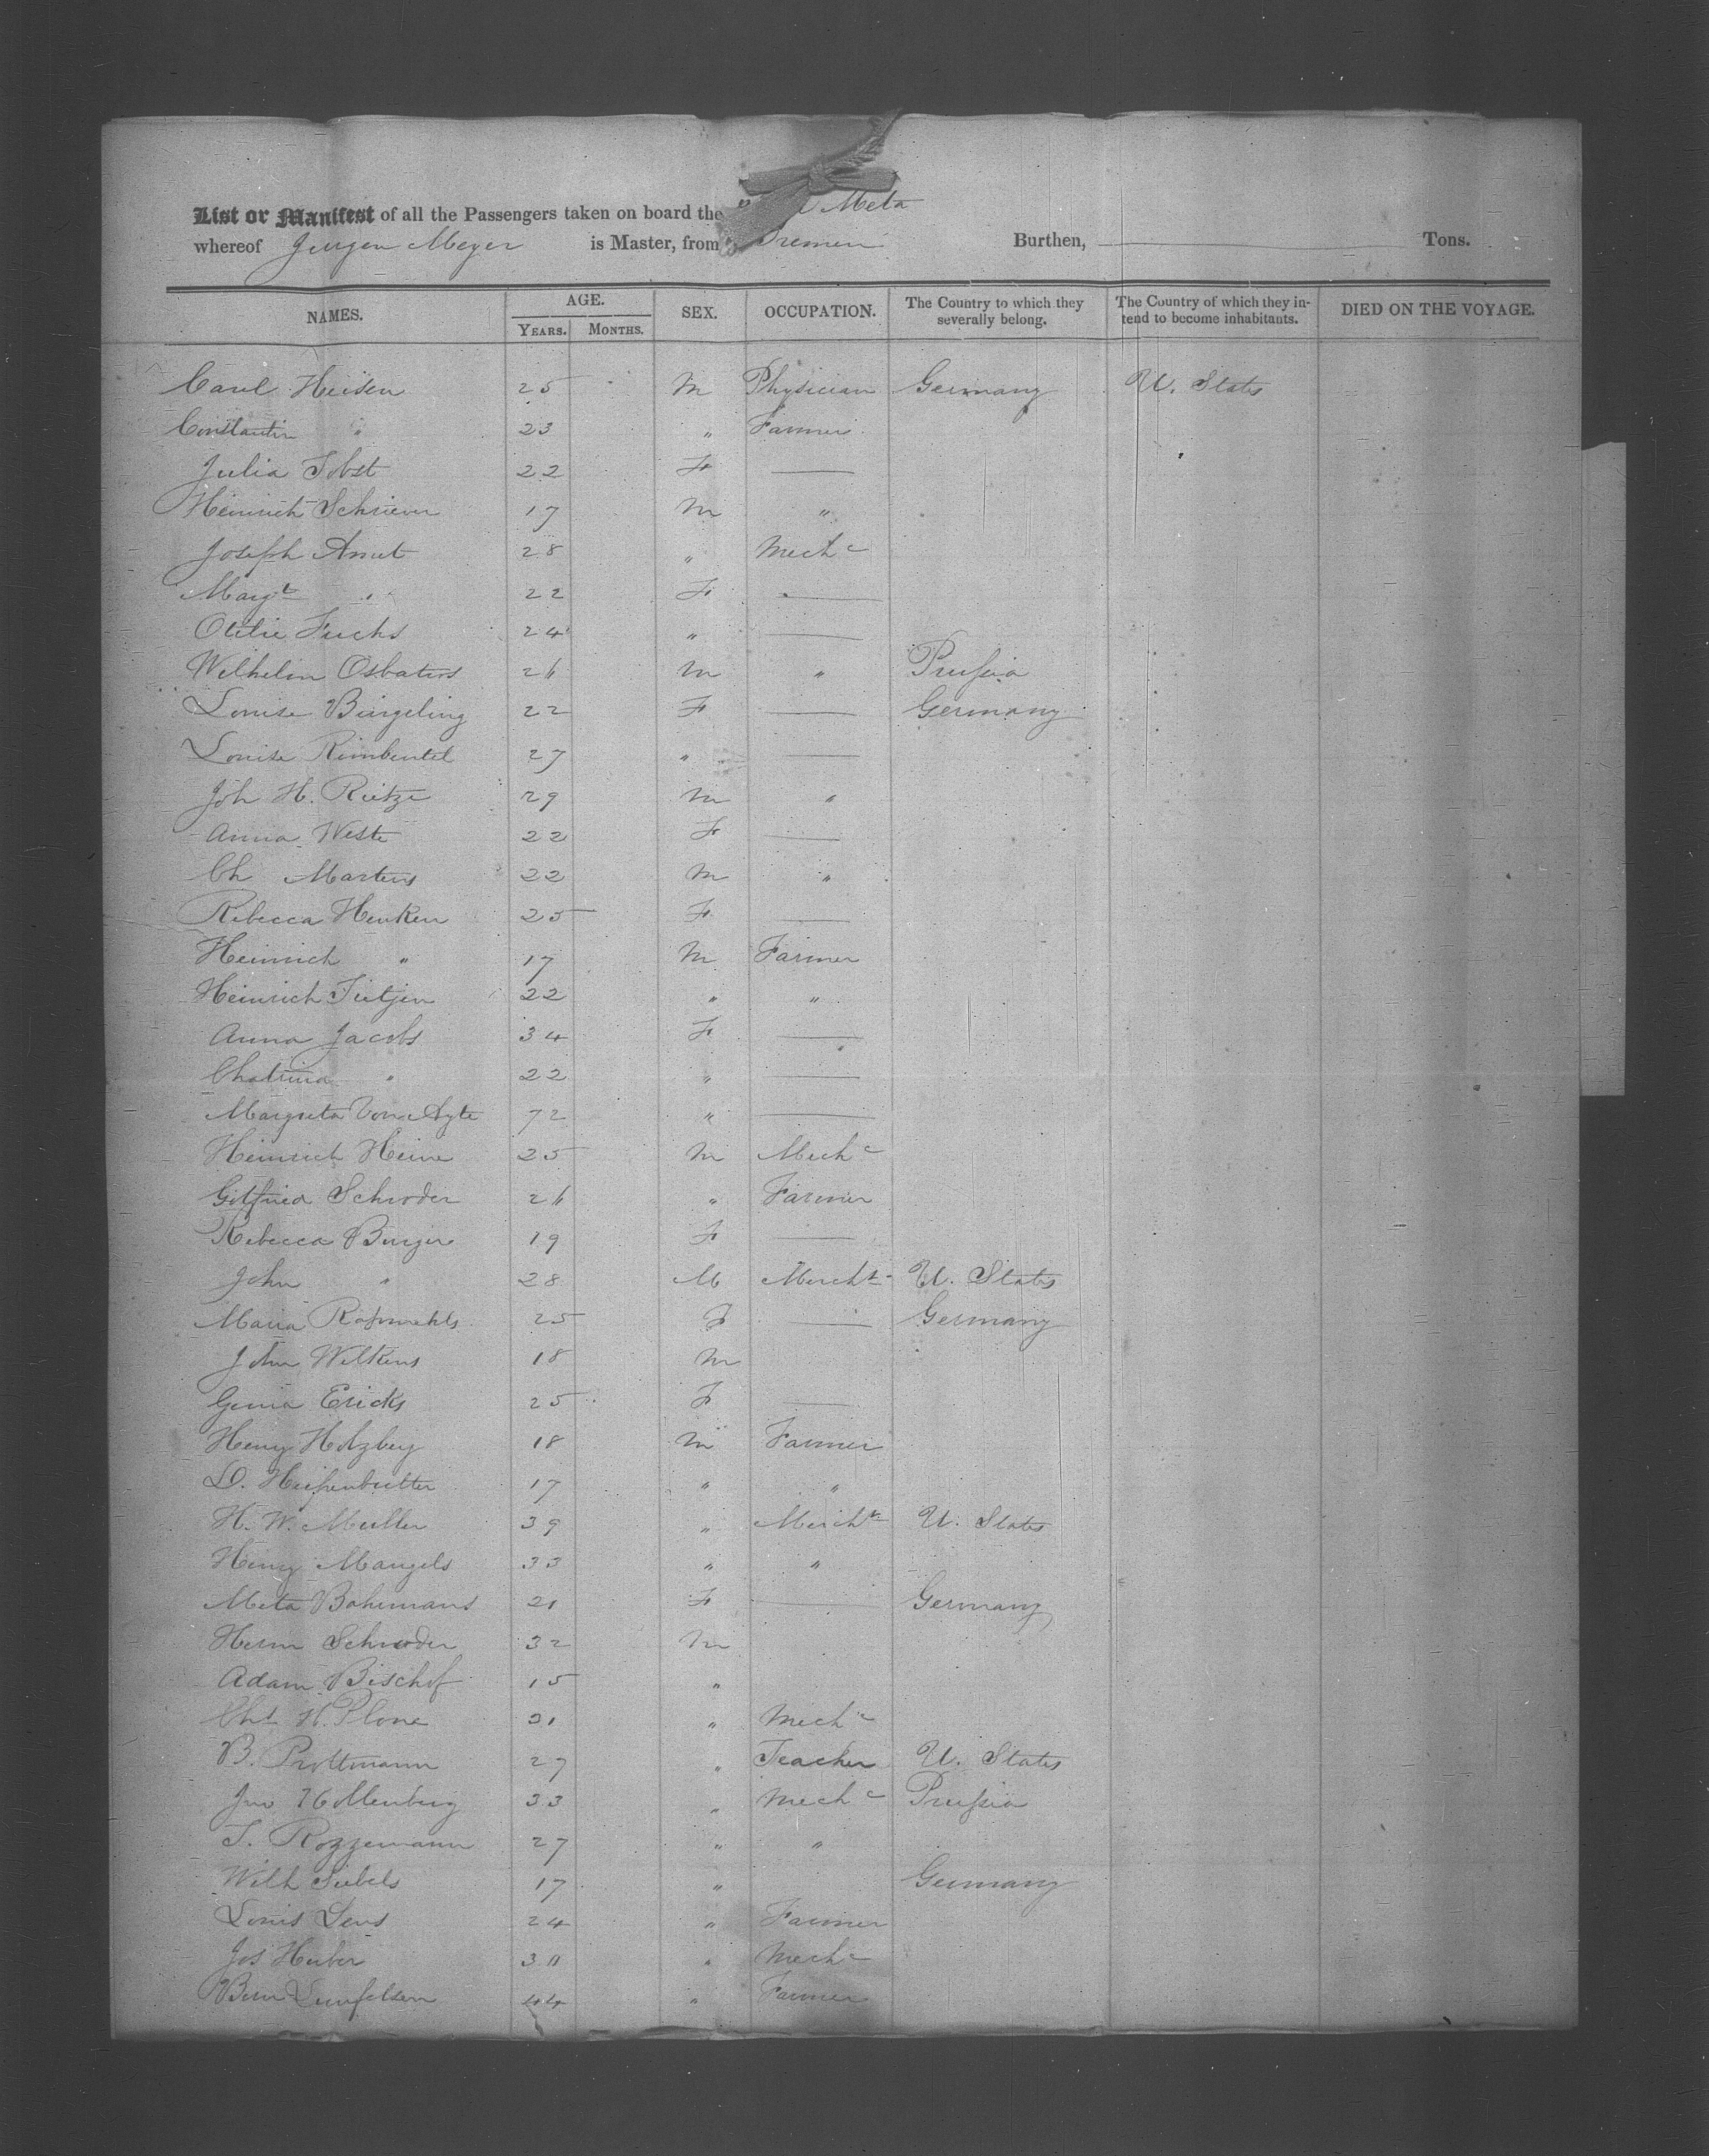 List or Manifest of all the Passengers taken on board the Meta
whereof Jurgen Meyer is Master, from Bremen Burthen, Tons.
NAMES. AGE. YEARS. MONTHS. SEX. OCCUPATION. The Country to which they severally belong. The Country of which they intend to become inhabitants. DIED ON THE VOYAGE.
Carl Heisen 25 M Physician Germany U. States
Constantin " 23 " Farmer
Julia Jobst 22 F —
Heinrich Schriever 17 M "
Joseph 28 " Mechc
Margt " 22 F —
Ottilie Fuchs 24 " —
Wilhelm 26 M " Prussia
Louise Bürgeling 22 F — Germany
Louise Rimbentel 27 " —
Joh H. Rietze 29 M "
Anna Weste 22 F —
Ch Martens 22 M "
Rebecca Henken 25 F —
Heinrich " 17 M Farmer
Heinrich Tietjen 22 " "
Anna Jacobs 34 F —
Chatrina " 22 " —
Margreta Von 72 " —
Heinrich Heine 25 M Mechc
Gotfried Schroder 26 " Farmer
Rebecca Burger 19 F —
John " 28 M Mercht U. States
Maria 25 F — Germany
John Wilkens 18 M
Ericks 25 F —
Henry Holzberg 18 M Farmer
D. Heissenbutter 17 " "
H. W. Muller 39 " Mercht U. States
Henry Mangels 33 " "
Meta Bohrmans 21 F — Germany
Herm Schroder 32 M
Adam Bischof 15 "
Cht H. Plone 31 " Mechc
B. Prottmann 27 " Teacher U. States
Jno Hollenberg 33 " Mechc Prussia
Roggemann 27 " "
Wilh Siebels 17 " Germany
Louis Lens 24 " Farmer
Jos Huber 30 " Mechc
44 " Farmer